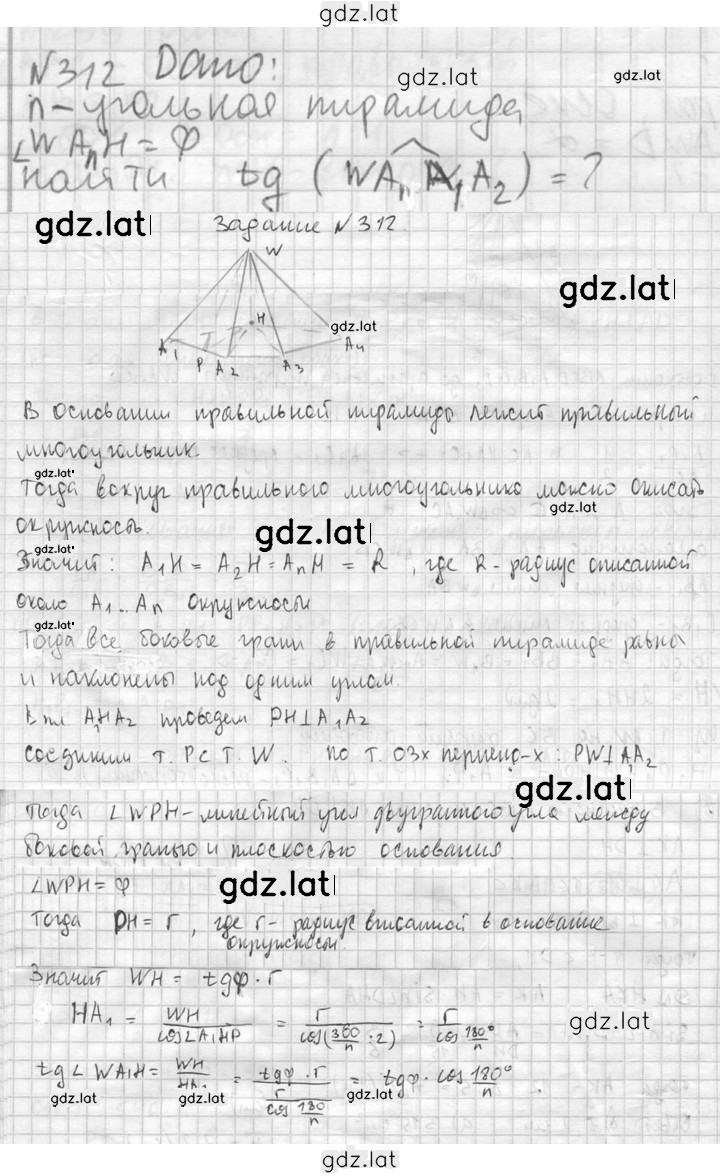 gdz.lat
N312 Дано:
gdz.lat
gdz.lat
n-угольная пирамида
∠WAnH = φ
найти tg (WAn A1A2) = ?
gdz.lat
Задание N312.
W
gdz.lat
H
gdz.lat
A1 P A2 A3 A4
В основании правильной пирамиды лежит правильный
многоугольник.
gdz.lat
Тогда вокруг правильного многоугольника можно описать
gdz.lat
окружность.
gdz.lat
gdz.lat
Значит: A1H = A2H = AnH = R, где R - радиус описанной
около A1..An окружности
gdz.lat
Тогда все боковые грани в правильной пирамиде равны
и наклонены под одним углом.
В пл A1HA2 проведем PH⊥A1A2
соединим т. P с т. W. по т. о 3х перпенд-х: PW⊥A1A2
gdz.lat
Тогда ∠WPH - линейный угол двугранного угла между
боковой гранью и плоскостью основания
∠WPH = φ
gdz.lat
Тогда PH = r, где r - радиус вписанной в основание
окружности.
Значит WH = tgφ · r
HA1 = WH / cos∠A1HP = r / cos(360/n · 2) = r / cos 180°/n
gdz.lat
tg∠WA1H = WH / HA1 = tgφ · r / (r / cos 180/n) = tgφ · cos 180°/n
gdz.lat
gdz.lat
gdz.lat
gdz.lat